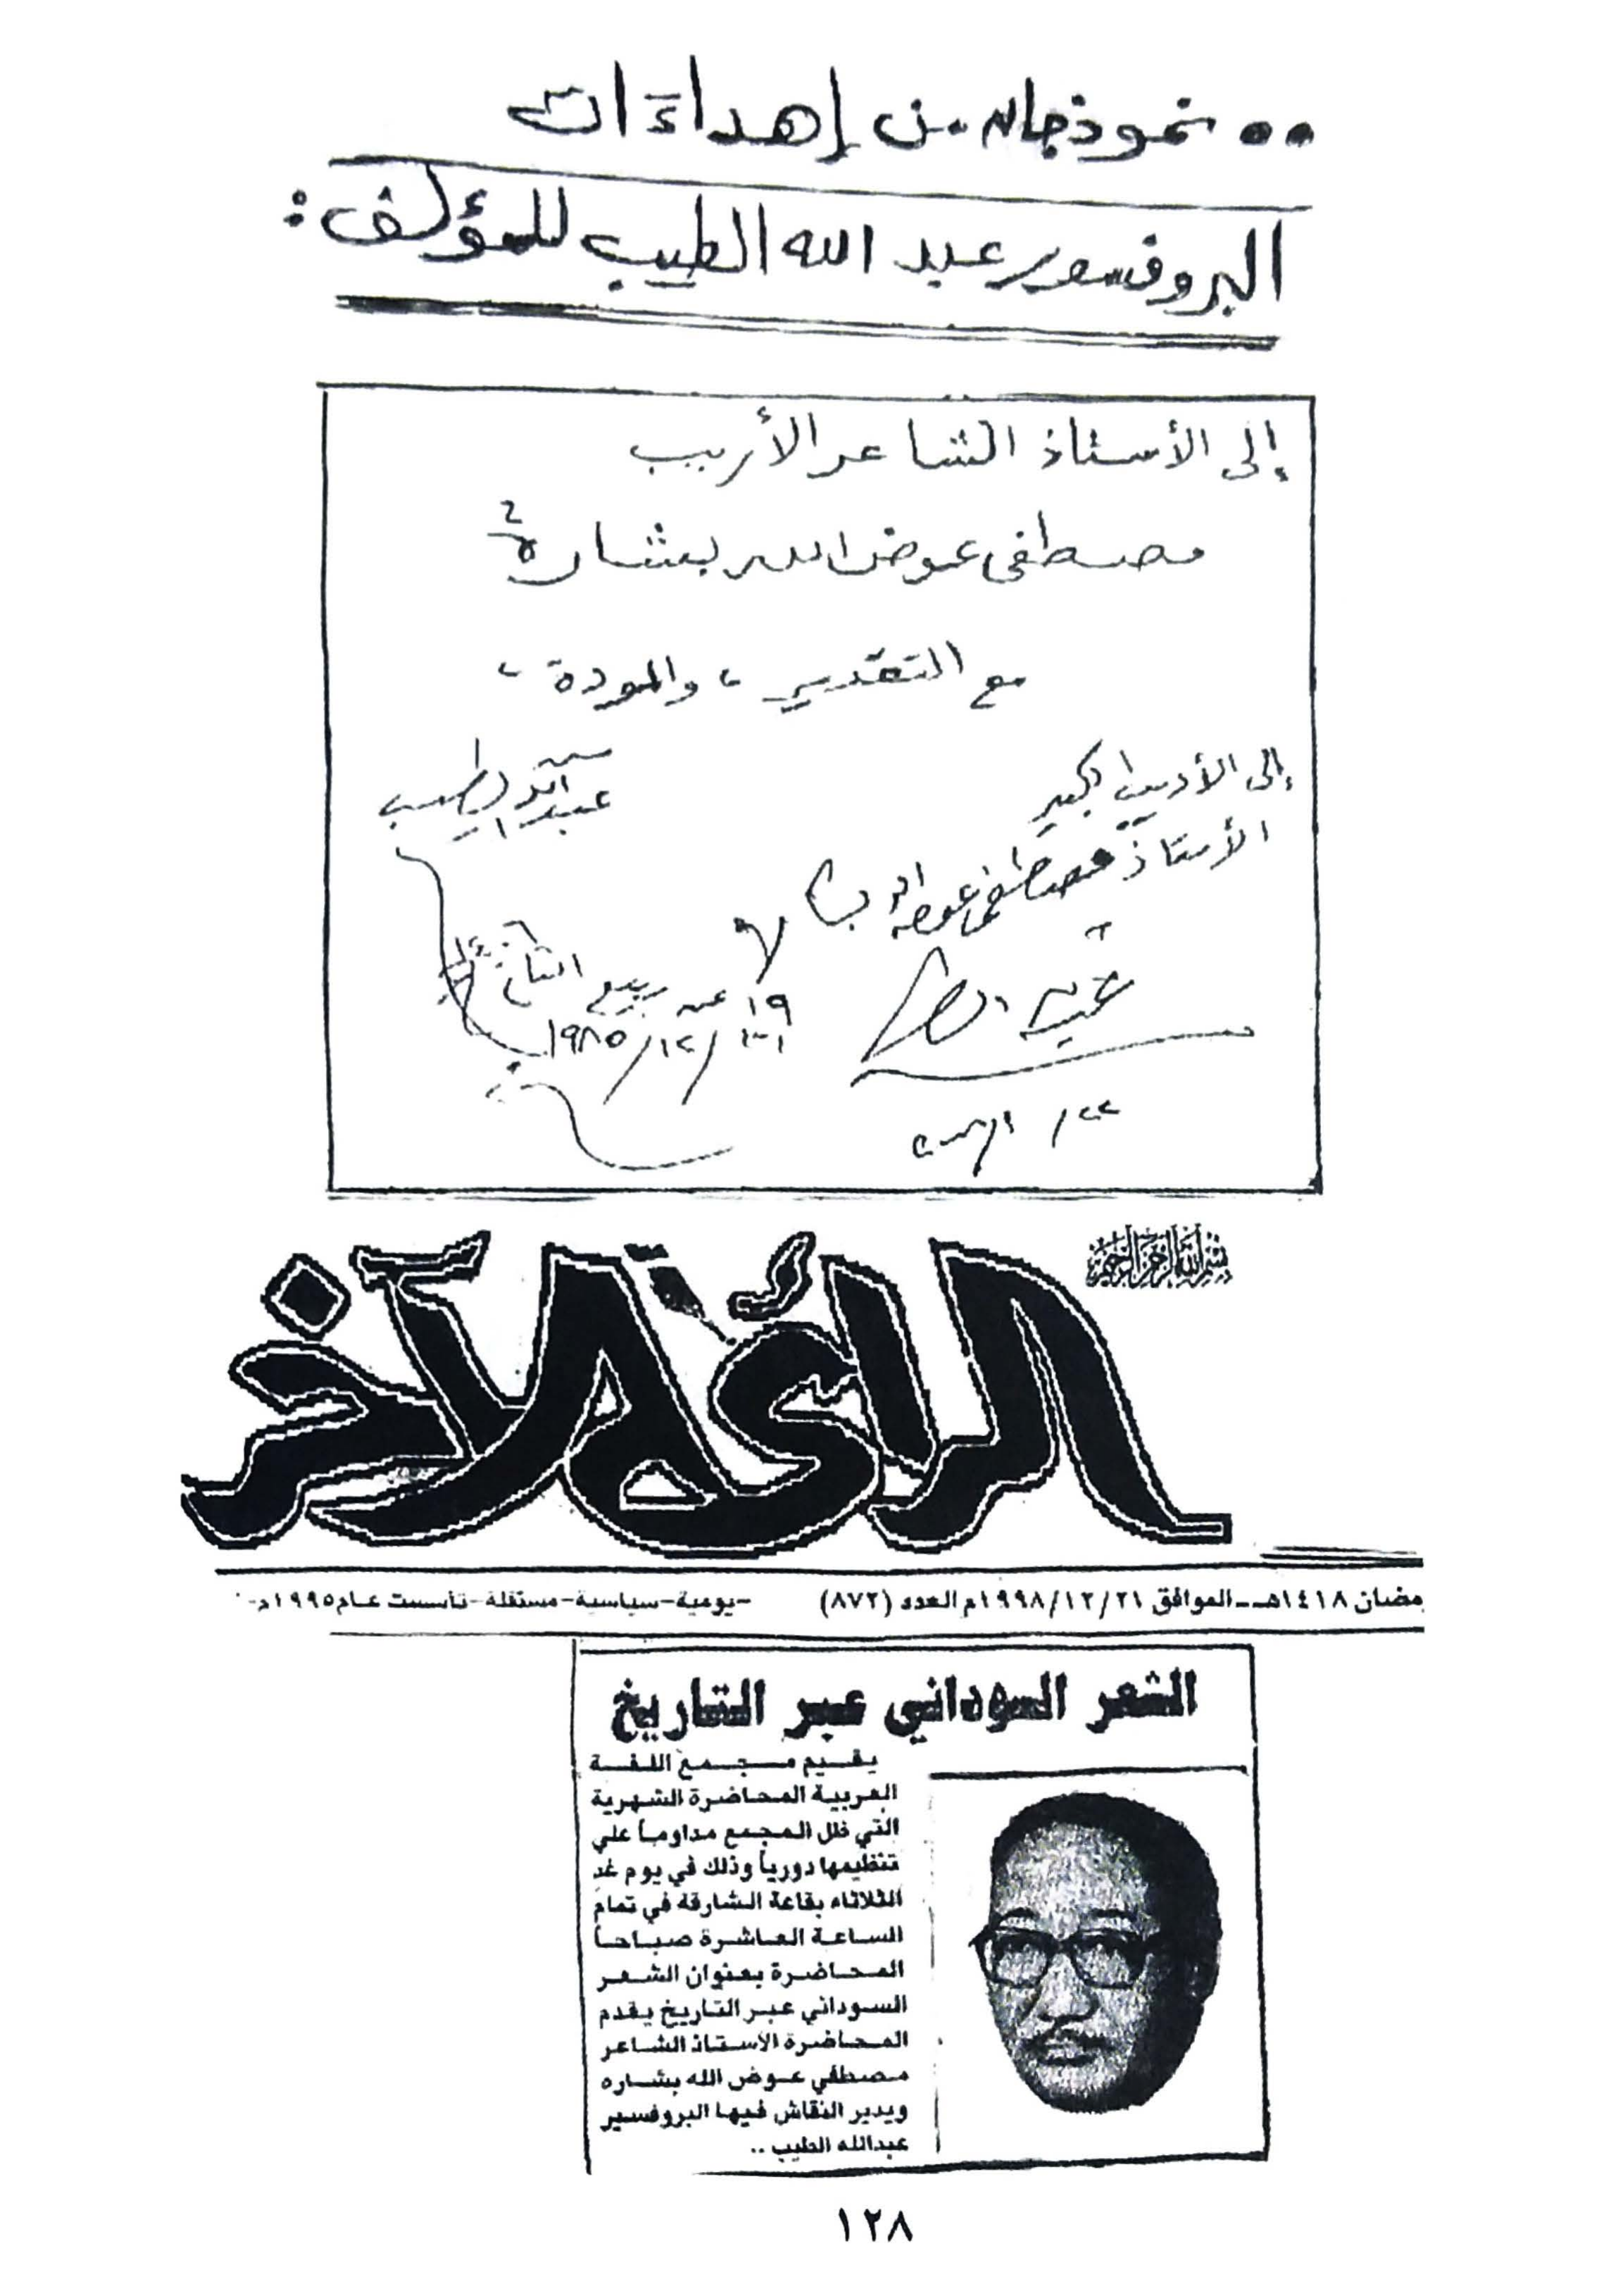 ●● نموذجان من إهداءات
البروفسور عبد الله الطيب للمؤلف :
إلى الأستاذ الشاعر الأريب
مصطفى عوض الله بشارة
مع التقدير ، والمودة ،
عبد الله الطيب
١٩ من ربيع الثاني
١٩٨٥/١٢/٣١
إلى الأديب الكبير
الأستاذ مصطفى عوض الله
عبد الله
بسم الله الرحمن الرحيم
الرأي الآخر
مضان ١٤١٨هـ--الموافق ١٩٩٨/١٢/٢١م العدد (٨٧٢) -يومية-سياسية-مستقلة-تأسست عام ١٩٩٥م-
الشعر السوداني عبر التاريخ
يقيم مجمع اللغة
العربية المحاضرة الشهرية
التي ظل المجمع مداوماً علي
تنظيمها دورياً وذلك في يوم غد
الثلاثاء بقاعة الشارقة في تمام
الساعة العاشرة صباحاً
المحاضرة بعنوان الشعر
السوداني عبر التاريخ يقدم
المحاضرة الاستاذ الشاعر
مصطفي عوض الله بشاره
ويدير النقاش فيها البروفسير
عبدالله الطيب ..
١٢٨